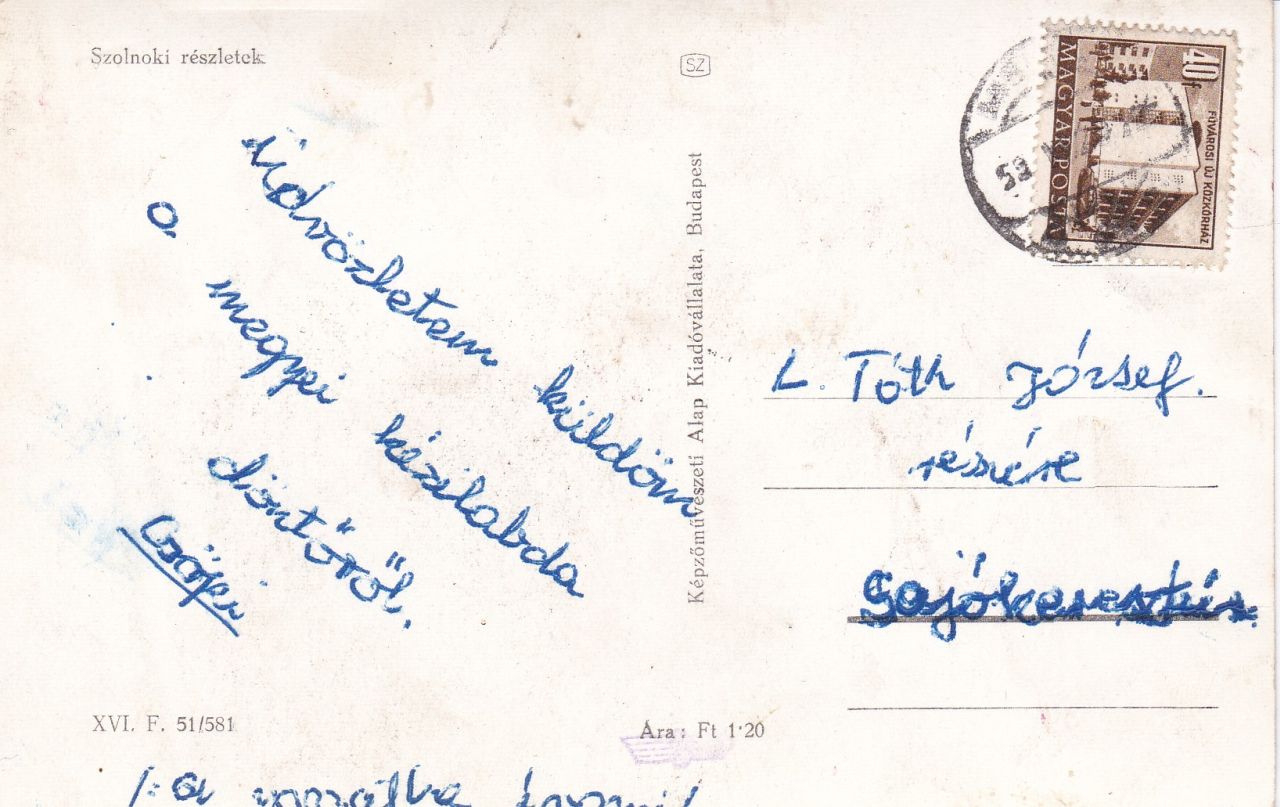 Szolnoki részletek
SZ
40f
MAGYAR POSTA
FŐVÁROSI ÚJ KÖZKÓRHÁZ
Üdvözletem küldöm
a megyei kézilabda
döntőről.
Csöpi
Képzőművészeti Alap Kiadóvállalata, Budapest
L. Tóth József.
részére
Sajókeresztúr.
XVI. F. 51/581
Ára: Ft 1·20